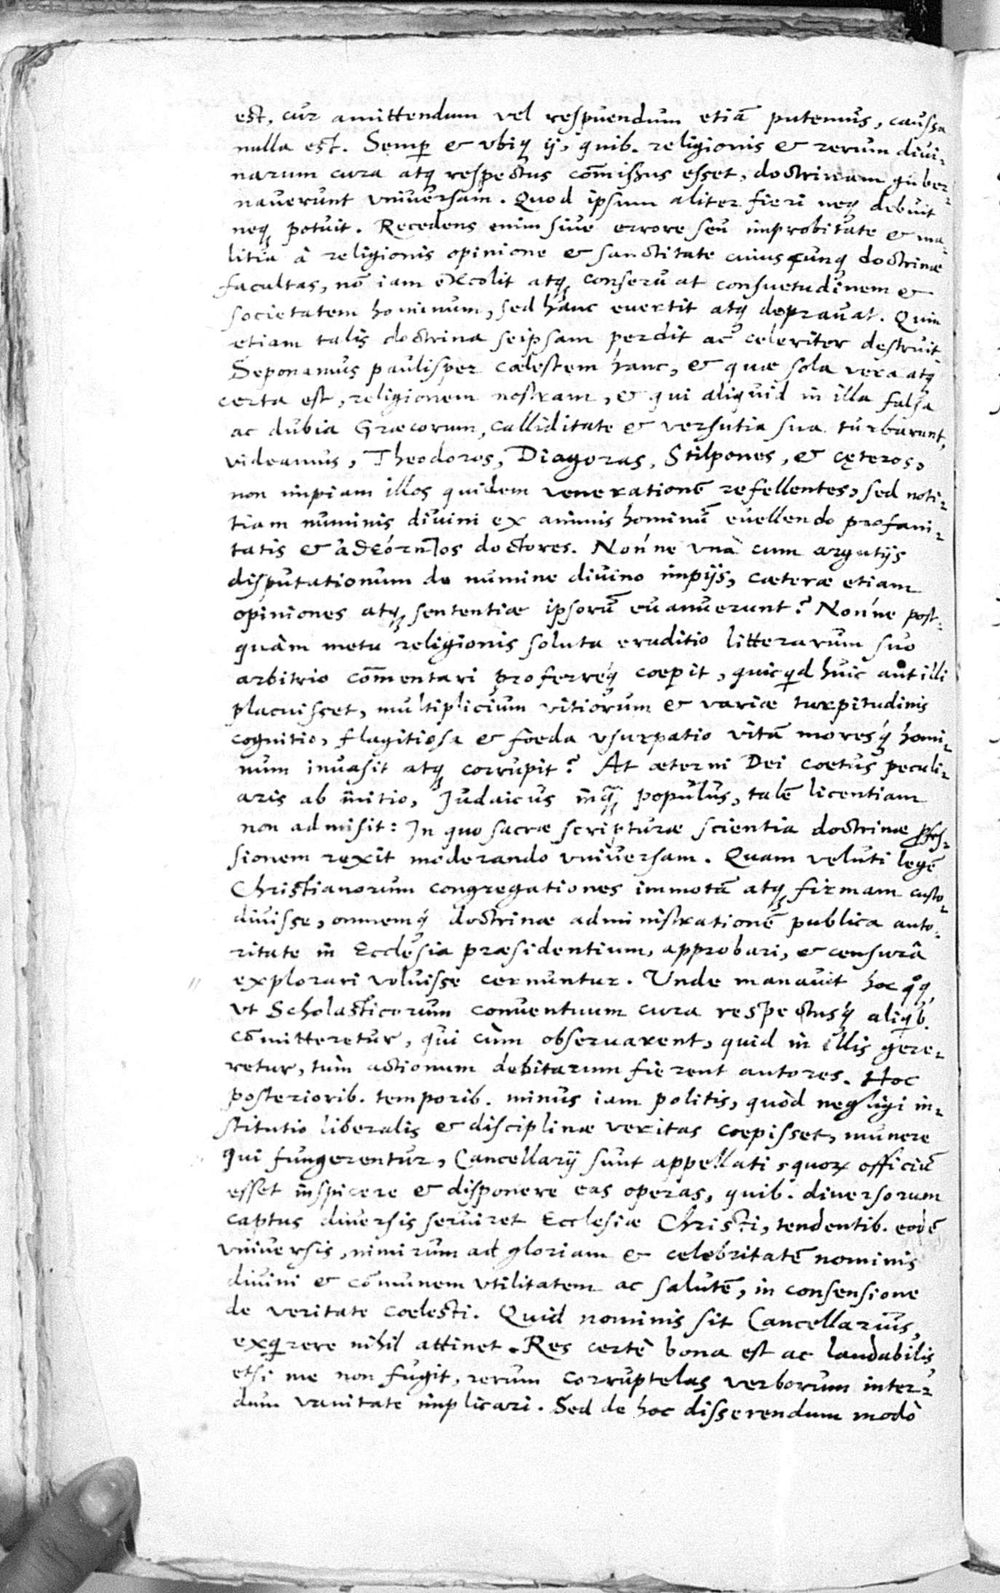 est, cur amittendum vel respuendum etiā putemus, caussa
nulla est. Semp et vbiq ij, quib. religionis et rerum divi-
narum cura atq respectus cōmissus esset, doctrinam guber-
nauerunt vniuersam. Quod ipsum aliter fieri neq debuit
neq potuit. Recedens enim siue errore seu improbitate et ma-
litia à religionis opinione et sanctitate cuiuscunq doctrinæ
facultas, nō iam excolit atq conseruat consuetudinem et
societatem hominum, sed hanc euertit atq deprauat. Quin
etiam talis doctrina seipsam perdit ac celeriter destruit
Seponamus paulisper cælestem hanc, et quæ sola vera atq
certa est, religionem nostram, et qui aliquid in illa falsa
ac dubia Græcorum, calliditate et versutia sua turbarunt,
videamus, Theodoros, Diagoras, Stilpones, et cęteros,
non impiam illos quidem venerationē refellentes, sed noti-
tiam numinis diuini ex animis hominū euellendo profani-
tatis et ἀθεότητος doctores. Nónne vnà cum argutijs
disputationum de numine diuino impijs, cæteræ etiam
opiniones atq sententiæ ipsorū euanuerunt? Nónne post-
quàm metu religionis soluta eruditio litterarum suo
arbitrio cōmentari proferreq́ coepit, quicqd huic aut illi
placuisset, multiplicium vitiorum et variæ turpitudinis
cognitio, flagitiosa et foeda vsurpatio vitā moresq́ homi-
num inuasit atq corrupit? At æterni Dei coetus peculi-
aris ab initio, Judaicus inq̄ populus, talē licentiam
non admisit: In quo sacræ scripturæ scientia doctrinæ pfes-
sionem rexit moderando vniuersam. Quam veluti legē
Christianorum congregationes immotā atq firmam custo-
diuisse, omnemq́ doctrinæ administrationē publica auto-
ritate in Ecclesia præsidentium, approbari, et censurâ
explorari voluisse cernuntur. Unde manauit hoc qq,
vt Scholasticorum conuentuum cura respectusq́ aliqb.
cōmitteretur, qui cùm obseruarent, quid in illis gere-
retur, tùm actionum debitarum fierent autores. Hoc
posteriorib. temporib. minus iam politis, quòd negligi in-
stitutio liberalis et disciplinæ veritas coepisset, munere
qui fungerentur, Cancellarij sunt appellati, quorꝝ officiū
esset inspicere et disponere eas operas, quib. diuersorum
captus diuersis seruiret Ecclesiæ Christi, tendentib. eodē
vniuersis, nimirum ad gloriam et celebritatē nominis
diuini et cōmunem vtilitatem ac salutē, in consensione
de veritate coelesti. Quid nominis sit Cancellarius,
exqrere nihil attinet. Res certè bona est ac laudabilis
etsi me non fugit, rerum corruptelas verborum inter-
dum vanitate implicari. Sed de hoc disserendum modò